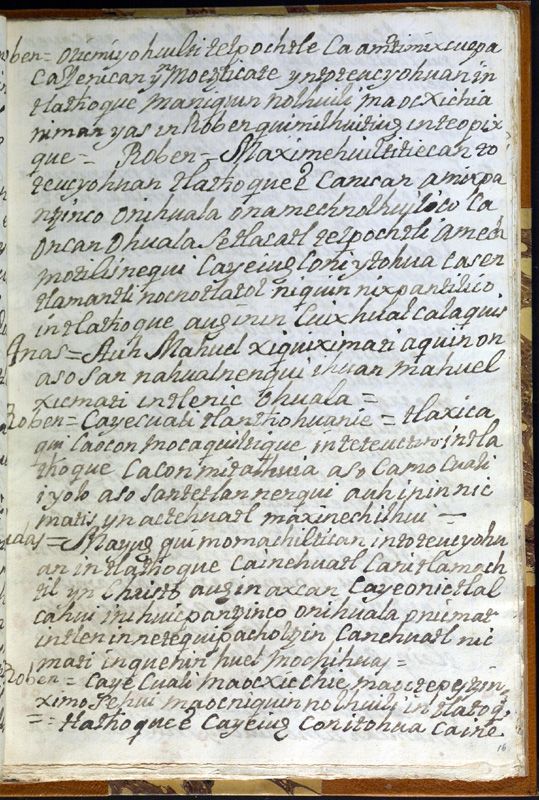 Roben = onimiyohuilti telpochtle ca amtimixcuepa
ca Yenican yn Moetzticate yntoteucyohuan in
tlathoque maniquinnolhuili maocxichia
niman yas in Roben quimilhuitiuz inteopix
que = Roben = Maximehuiltitiecan to
teucyohuan tlathoque e canican amixpa
ntzinco onihuala onamechnolhuilico ca
oncan ohuala Setlacatl telpochtli amech
motilisnequi Cayeiuz Coniytohua Casen
tlamantli nocnotlatol niquinnixpantilico
intlathoque auzinin Cuixhual calaquis
Anas = Auh Mahuel xiquiximati aquin on
aso san nahualnenqui ihuan mahuel
xicmati intlenic Ohuala =
Roben = Cayecuali tlanthohuanie = tlaxica
qui Caocon mocaquiltique inteteuctin intla
thoque Caconmitalhuia aso Camo Cuali
iyolo aso santetlannenqui auh inin nic
matis yn actehuatl maxinechilhui —
udas = Mayuz quimomachiltican intoteucyohu
an intlathoque Cainehuatl Canitlamach
til yn Christo auzin axcan Cayeonictlal
cahui inihuicpantzinco onihuala nicmat
intlen innetequipacholtzin Canehuatl nic
mati inquenin huel mochihuas =
Roben = Caye Cuali maocxicchie maoctepitzin
ximoSehui maocniquinnolhuili intlatoq
= = tlathoquee Cayeiuz Conitohua Caine
16